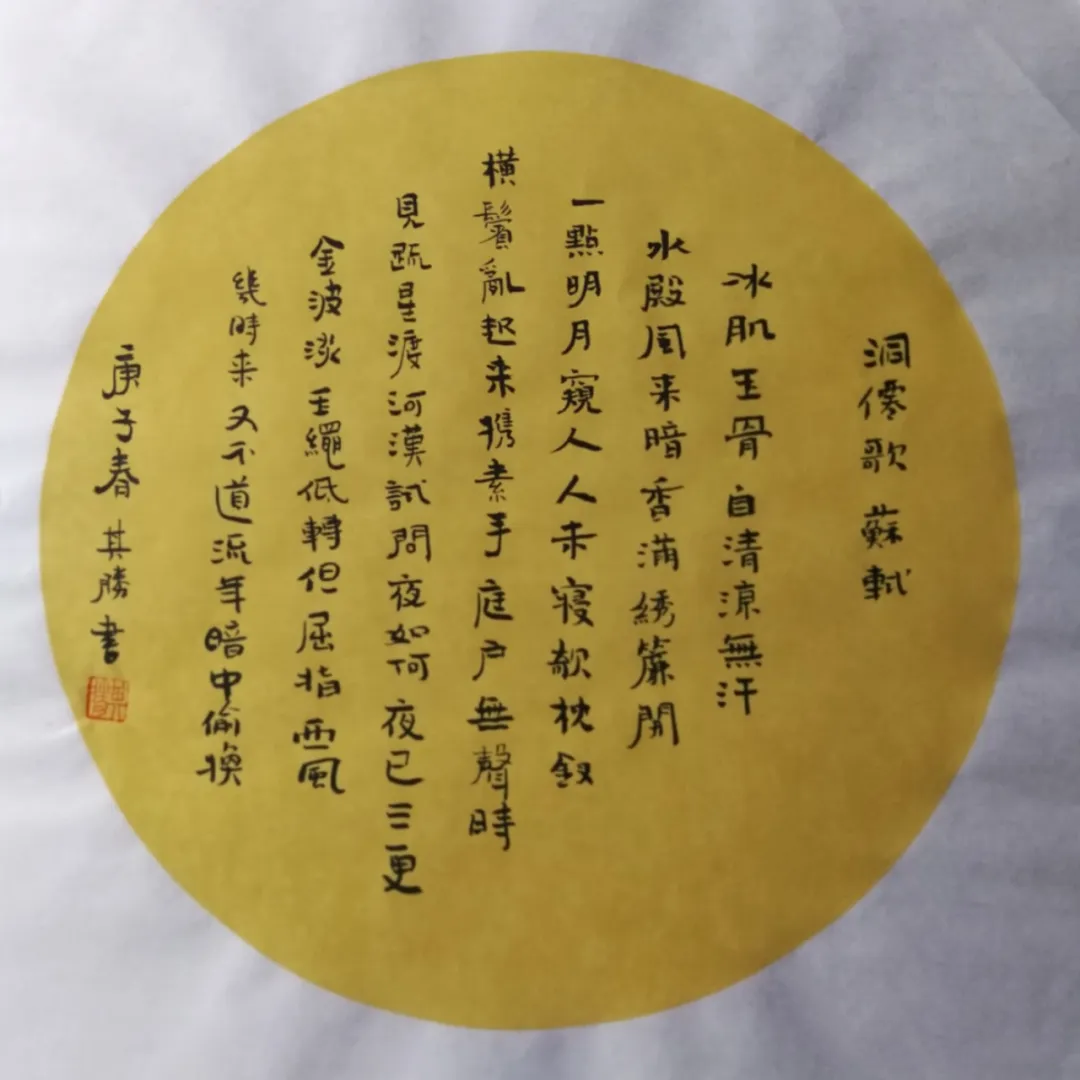 洞僊歌 蘇軾
冰肌玉骨自清涼無汗
水殿風来暗香滿綉簾開
一點明月窺人人未寢欹枕釵
橫鬢亂起来携素手庭户無聲時
見疏星渡河漢試問夜如何夜已三更
金波淡玉繩低轉但屈指西風
幾時来又不道流年暗中偷換
庚子春其勝書